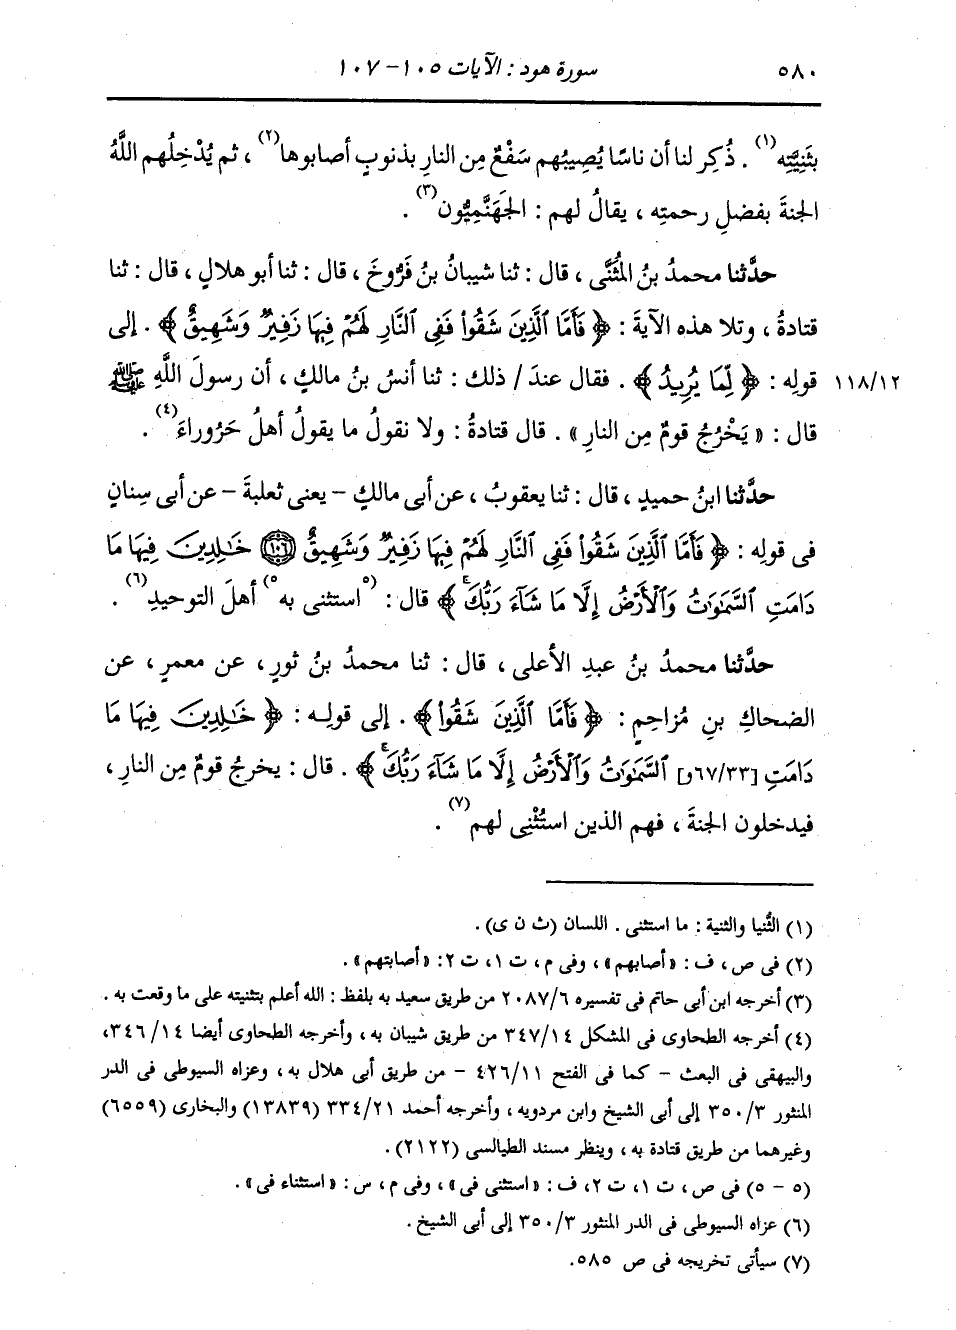 ٥٨٠ سورة هود : الآيات ١٠٥ - ١٠٧
بثَنِيَّتِه(١) . ذُكِر لنا أن ناسًا يُصِيبُهم سَفْعٌ مِن النارِ بذنوبٍ أصابوها(٢) ، ثم يُدْخِلُهم اللَّهُ
الجنةَ بفضلِ رحمتِه ، يقالُ لهم : الجَهَنَّمِيُّون(٣) .
حدَّثنا محمدُ بنُ المُثَنَّى ، قال : ثنا شيبانُ بنُ فَرُّوخَ ، قال : ثنا أبو هلالٍ ، قال : ثنا
قتادةُ ، وتلا هذه الآيةَ : ﴿ فَأَمَّا ٱلَّذِينَ شَقُوا۟ فَفِى ٱلنَّارِ لَهُمْ فِيهَا زَفِيرٌ وَشَهِيقٌ ﴾ . إلى
١١٨/١٢ قولِه : ﴿ لِّمَا يُرِيدُ ﴾ . فقال عندَ / ذلك : ثنا أنسُ بنُ مالكٍ ، أن رسولَ اللَّهِ ﷺ
قال : « يَخْرُجُ قومٌ مِن النارِ » . قال قتادةُ : ولا نقولُ ما يقولُ أهلُ حَرُوراءَ(٤) .
حدَّثنا ابنُ حميدٍ ، قال : ثنا يعقوبُ ، عن أبى مالكٍ - يعنى ثعلبةَ - عن أبى سِنانٍ
فى قولِه : ﴿ فَأَمَّا ٱلَّذِينَ شَقُوا۟ فَفِى ٱلنَّارِ لَهُمْ فِيهَا زَفِيرٌ وَشَهِيقٌ ﴿١٠٦﴾ خَـٰلِدِينَ فِيهَا مَا
دَامَتِ ٱلسَّمَـٰوَٰتُ وَٱلْأَرْضُ إِلَّا مَا شَآءَ رَبُّكَ ﴾ قال : (٥استثنى به٥) أهلَ التوحيدِ(٦) .
حدَّثنا محمدُ بنُ عبدِ الأعلى ، قال : ثنا محمدُ بنُ ثورٍ ، عن معمرٍ ، عن
الضحاكِ بنِ مُزاحِمٍ : ﴿ فَأَمَّا ٱلَّذِينَ شَقُوا۟ ﴾ . إلى قولِه : ﴿ خَـٰلِدِينَ فِيهَا مَا
دَامَتِ [٦٧/٣٣و] ٱلسَّمَـٰوَٰتُ وَٱلْأَرْضُ إِلَّا مَا شَآءَ رَبُّكَ ﴾ . قال : يخرجُ قومٌ مِن النارِ ،
فيدخلون الجنةَ ، فهم الذين استُثْنِى لهم(٧) .
(١) الثُّنيا والثنية : ما استثنى . اللسان (ث ن ى) .
(٢) فى ص ، ف : « أصابهم » ، وفى م ، ت ١ ، ت ٢ : « أصابتهم » .
(٣) أخرجه ابن أبى حاتم فى تفسيره ٢٠٨٧/٦ من طريق سعيد به بلفظ : الله أعلم بتثنيته على ما وقعت به .
(٤) أخرجه الطحاوى فى المشكل ٣٤٧/١٤ من طريق شيبان به ، وأخرجه الطحاوى أيضا ٣٤٦/١٤ ،
والبيهقى فى البعث - كما فى الفتح ٤٢٦/١١ - من طريق أبى هلال به ، وعزاه السيوطى فى الدر
المنثور ٣٥٠/٣ إلى أبى الشيخ وابن مردويه ، وأخرجه أحمد ٣٣٤/٢١ (١٣٨٣٩) والبخارى (٦٥٥٩)
وغيرهما من طريق قتادة به ، وينظر مسند الطيالسى (٢١٢٢) .
(٥ - ٥) فى ص ، ت ١ ، ت ٢ ، ف : « استثنى فى » ، وفى م ، س : « استثناء فى » .
(٦) عزاه السيوطى فى الدر المنثور ٣٥٠/٣ إلى أبى الشيخ .
(٧) سيأتى تخريجه فى ص ٥٨٥ .